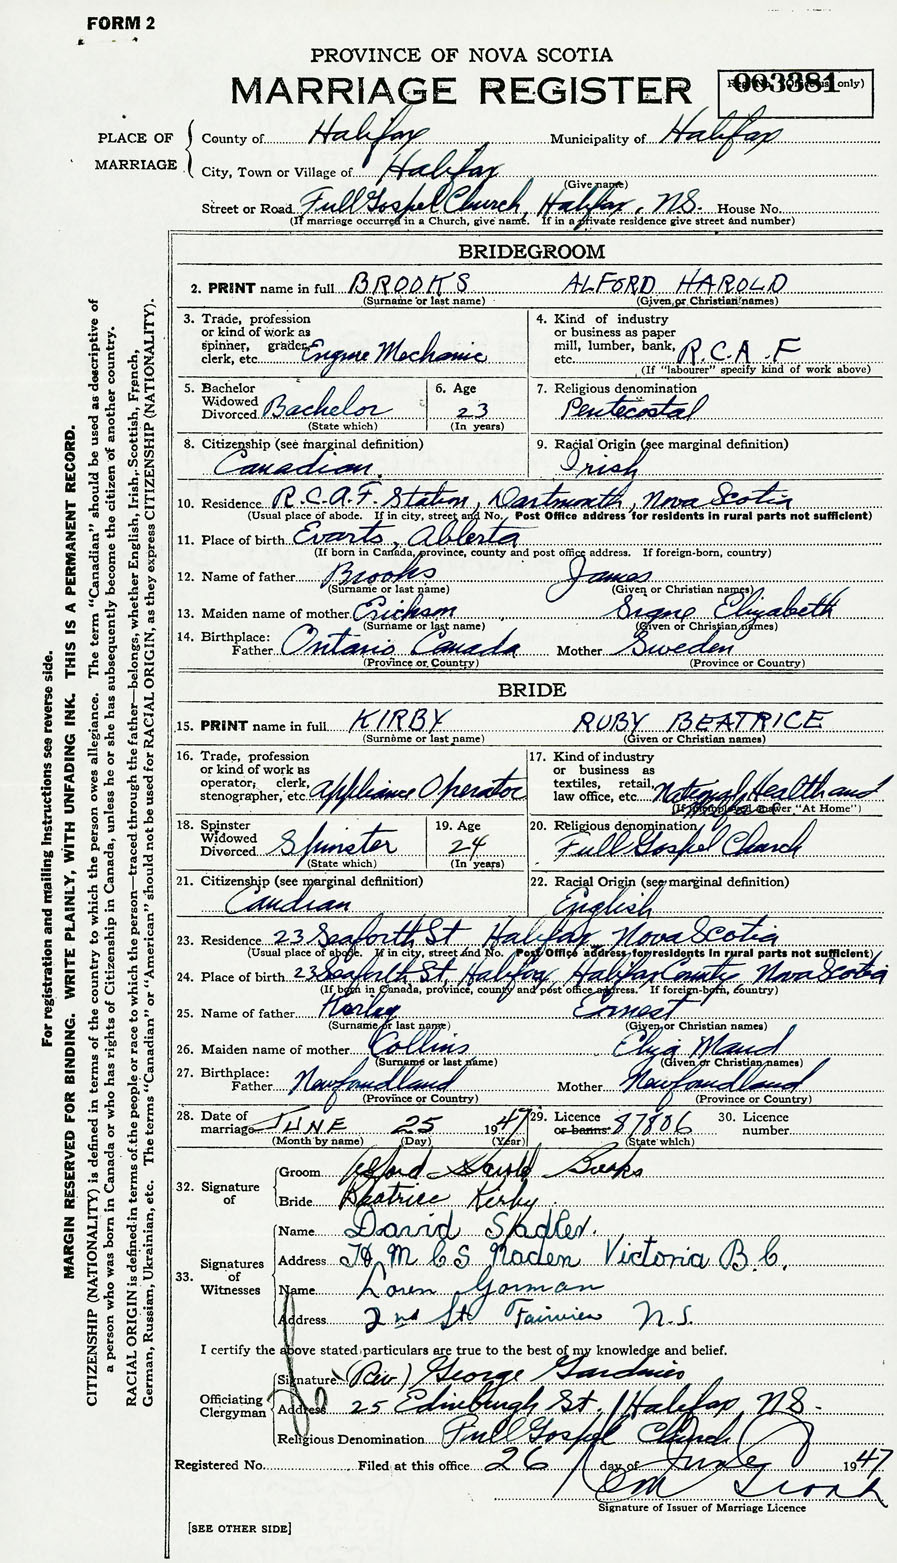 FORM 2
PROVINCE OF NOVA SCOTIA
MARRIAGE REGISTER
003381
PLACE OF MARRIAGE
County of Halifax Municipality of Halifax
City, Town or Village of Halifax
(Give name)
Street or Road Full Gospel Church, Halifax, N.S. House No.
(If marriage occurred in a Church, give name. If in a private residence give street and number)
BRIDEGROOM
2. PRINT name in full BROOKS ALFORD HAROLD
(Surname or last name) (Given or Christian names)
3. Trade, profession or kind of work as spinner, grader, clerk, etc. Engine Mechanic
4. Kind of industry or business as paper mill, lumber, bank, etc. R.C.A.F
(If "labourer" specify kind of work above)
5. Bachelor Widowed Divorced Bachelor
(State which)
6. Age 23
(In years)
7. Religious denomination
Pentecostal
8. Citizenship (see marginal definition)
Canadian.
9. Racial Origin (see marginal definition)
Irish
10. Residence R.C.A.F. Station, Dartmouth, Nova Scotia
(Usual place of abode. If in city, street and No. Post Office address for residents in rural parts not sufficient)
11. Place of birth Evarts, Ablerta
(If born in Canada, province, county and post office address. If foreign-born, country)
12. Name of father Brooks James
(Surname or last name) (Given or Christian names)
13. Maiden name of mother Erickson Signe Elizabeth
(Surname or last name) (Given or Christian names)
14. Birthplace: Father Ontario Canada Mother Sweden
(Province or Country) (Province or Country)
BRIDE
15. PRINT name in full KIRBY RUBY BEATRICE
(Surname or last name) (Given or Christian names)
16. Trade, profession or kind of work as operator, clerk, stenographer, etc. Appliance Operator
17. Kind of industry or business as textiles, retail, law office, etc. National Health and
18. Spinster Widowed Divorced Spinster
(State which)
19. Age 24
(In years)
20. Religious denomination
Full Gospel Church
21. Citizenship (see marginal definition)
Candian
22. Racial Origin (see marginal definition)
English
23. Residence 23 Seaforth St Halifax Nova Scotia
(Usual place of abode. If in city, street and No. Post Office address for residents in rural parts not sufficient)
24. Place of birth 23 Seaforth St, Halifax, Halifax County Nova Scotia
(If born in Canada, province, county and post office address. If foreign-born, country)
25. Name of father Kirby Ernest
(Surname or last name) (Given or Christian names)
26. Maiden name of mother Collins Maud
(Surname or last name) (Given or Christian names)
27. Birthplace: Father Newfoundland Mother Newfoundland
(Province or Country) (Province or Country)
28. Date of marriage JUNE 25 1947
(Month by name) (Day) (Year)
29. Licence or banns 87806
(State which)
30. Licence number
32. Signature of
Groom Alford Harold Brooks
Bride Beatrice Kirby.
33. Signatures of Witnesses
Name David Sadler.
Address H M C S Naden Victoria B.C.
Name Loren Gorman
Address 2nd St. Fairview N.S.
I certify the above stated particulars are true to the best of my knowledge and belief.
Officiating Clergyman
Signature (Rev) George
Address 25 Edinburgh St. Halifax, N.S.
Religious Denomination Full Gospel Church
Registered No. Filed at this office 26 day of June 1947
Signature of Issuer of Marriage Licence
[SEE OTHER SIDE]
For registration and mailing instructions see reverse side.
MARGIN RESERVED FOR BINDING. WRITE PLAINLY, WITH UNFADING INK. THIS IS A PERMANENT RECORD.
CITIZENSHIP (NATIONALITY) is defined in terms of the country to which the person owes allegiance. The term "Canadian" should be used as descriptive of
a person who was born in Canada or who has rights of Citizenship in Canada, unless he or she has subsequently become the citizen of another country.
RACIAL ORIGIN is defined in terms of the people or race to which the person—traced through the father—belongs, whether English, Irish, Scottish, French,
German, Russian, Ukrainian, etc. The terms "Canadian" or "American" should not be used for RACIAL ORIGIN, as they express CITIZENSHIP (NATIONALITY).